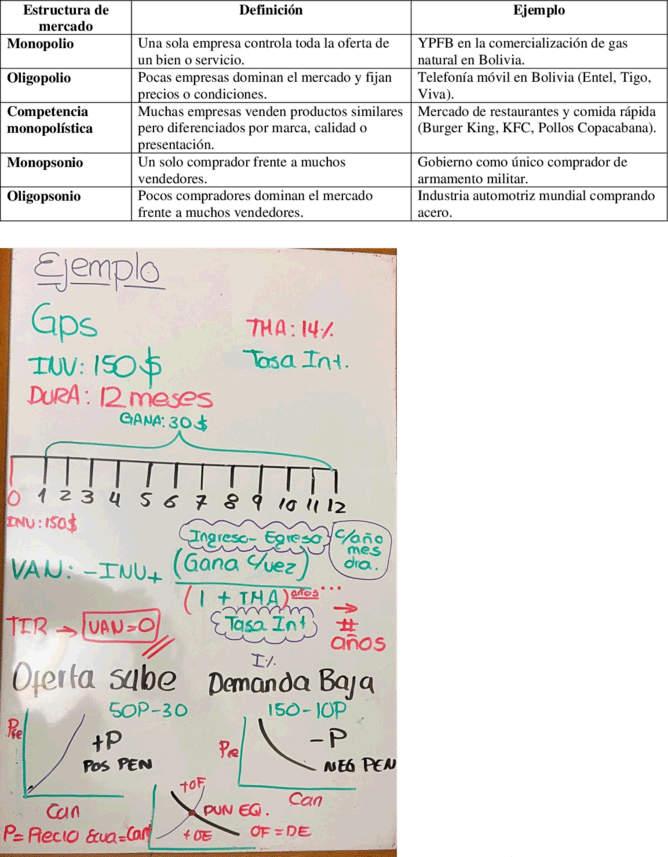 Estructura de mercado Definición Ejemplo
Monopolio Una sola empresa controla toda la oferta de un bien o servicio. YPFB en la comercialización de gas natural en Bolivia.
Oligopolio Pocas empresas dominan el mercado y fijan precios o condiciones. Telefonía móvil en Bolivia (Entel, Tigo, Viva).
Competencia monopolística Muchas empresas venden productos similares pero diferenciados por marca, calidad o presentación. Mercado de restaurantes y comida rápida (Burger King, KFC, Pollos Copacabana).
Monopsonio Un solo comprador frente a muchos vendedores. Gobierno como único comprador de armamento militar.
Oligopsonio Pocos compradores dominan el mercado frente a muchos vendedores. Industria automotriz mundial comprando acero.
Ejemplo
Gps
THA: 14%
INV: 150$
Tasa Int.
DURA: 12 meses
GANA: 30$
0 1 2 3 4 5 6 7 8 9 10 11 12
INU: 150$
Ingreso - Egreso
c/año
mes
dia.
VAN: -INU + (Gana c/vez)
(1 + THA) años ...
Tasa Int
# años
TIR → VAN=0
I%
Oferta sube
Demanda Baja
50P-30
150-10P
+P
POS PEN
Can
Pre
-P
NEG PEN
Can
+OF
PUN EQ.
+DE
OF = DE
P= Precio